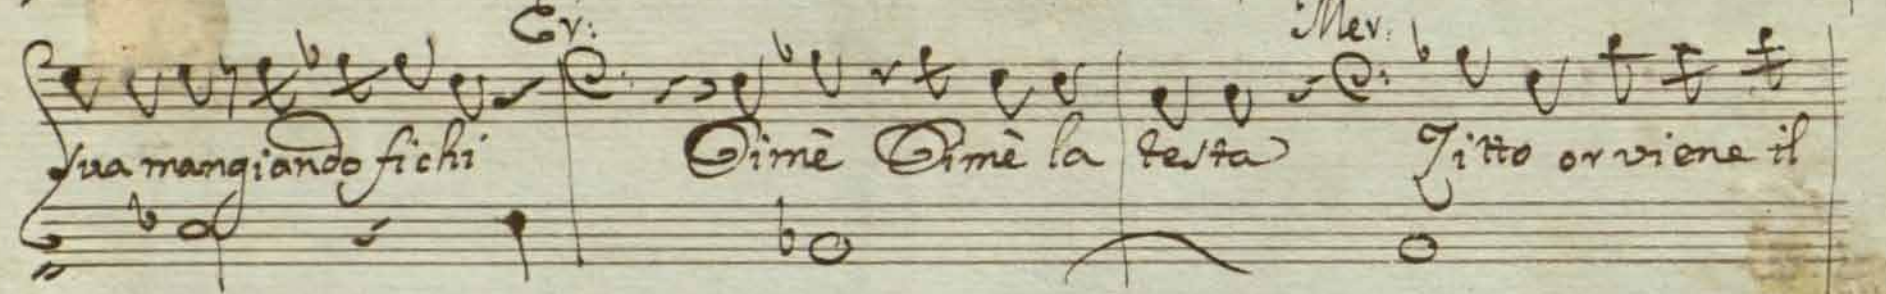 Er: Mer:
sua mangiando fichi Oimè Oimè la testa Zitto or viene il